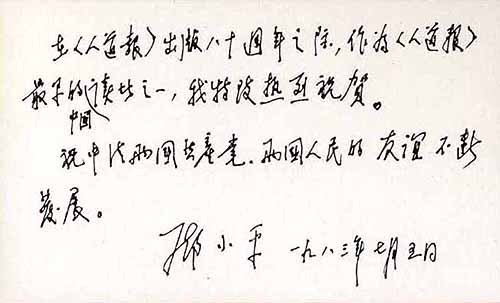 在《人道報》出版八十週年之际，作为《人道報》
最早的中國读者之一，我特致热烈祝賀。
祝中法两國共產党、两國人民的友谊不断
發展。
邓小平 一九八三年七月五日